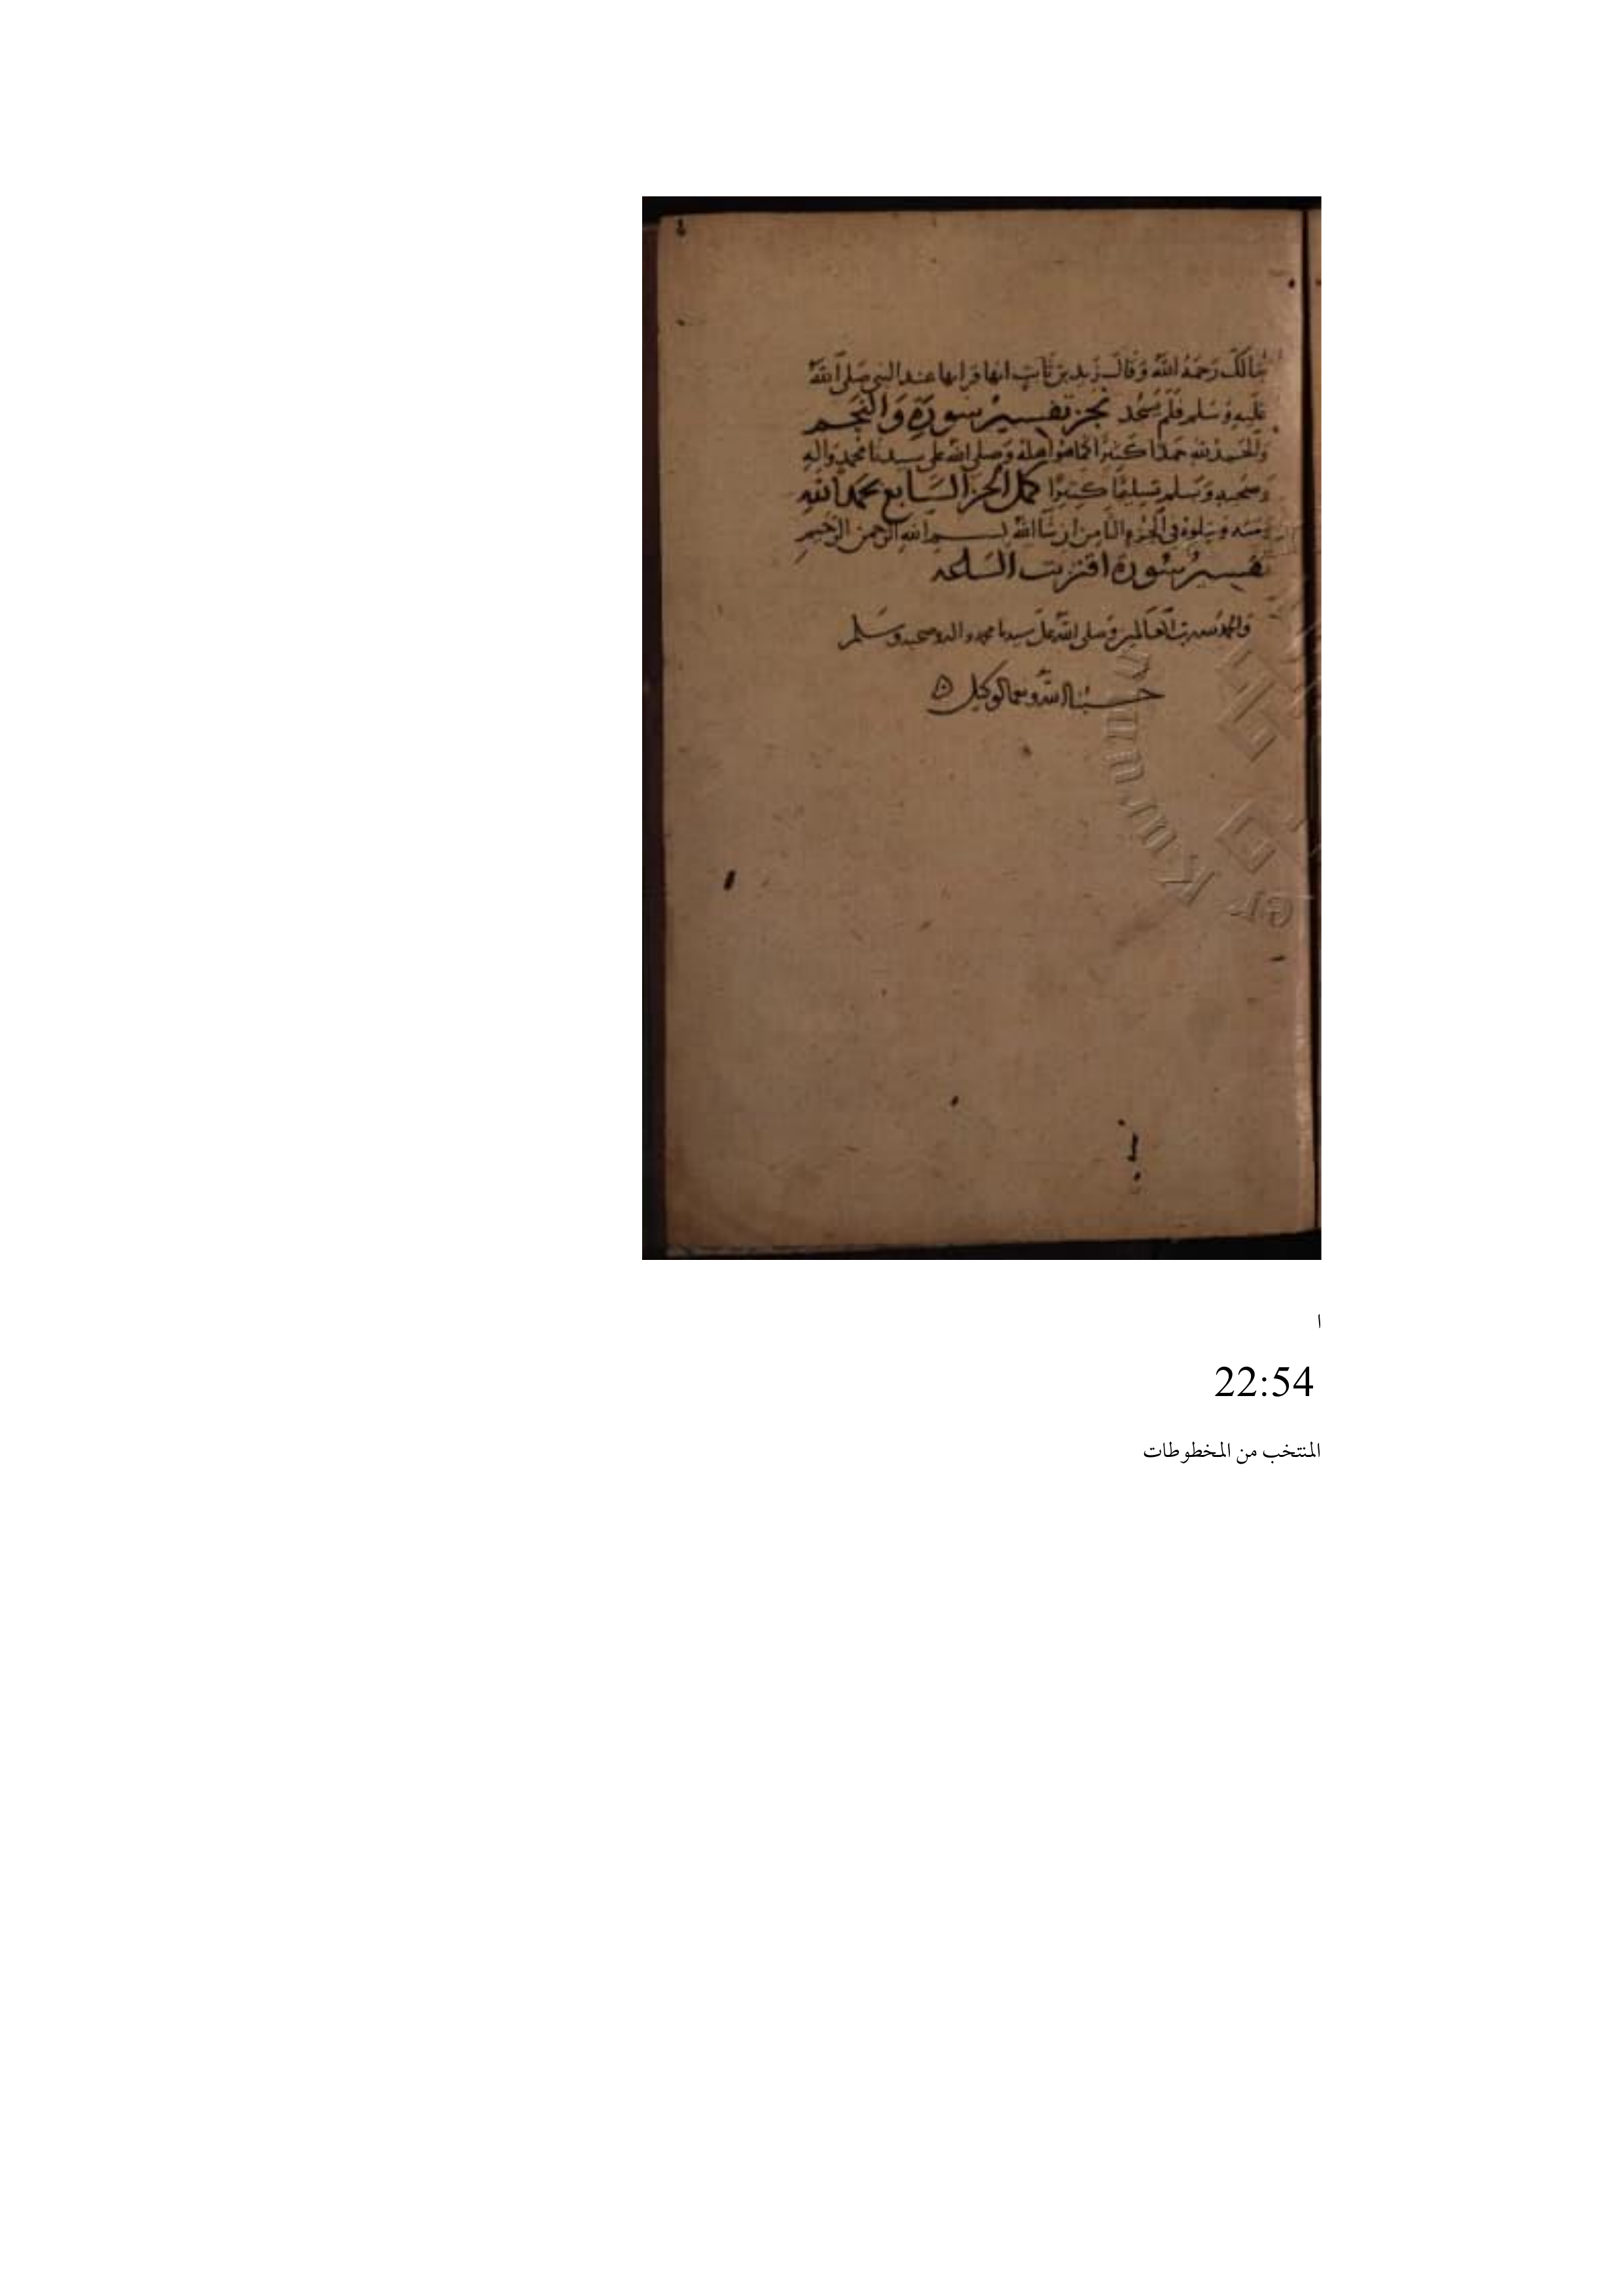 مَالكٌ رَحمَهُ اللهُ وَقَالَ زَيد بن ثَابتٍ انها قرأها عند النبي صَلى اللهُ
عَليهِ وَسَلم فَلَم يَسجُد نجز تفسير سورَة وَالنجَم
وَالحَمد لله حَمدًا كَثيرًا كما هُوَ اهله وَصلى الله على سيدنا محمدٍ واله
وصَحبهِ وَسَلم تسليمًا كثيرًا كمل الجز السَّابع بحمد الله
ومنه وَيتلوهُ في الجُزءِ الثامن ان شا الله بسم اللهِ الرحمن الرحيم
تفسير سُورة اقتربت الساعه
والحمد لله رب العالمين وصلى الله على سيدنا محمد واله وصحبه وسَلم
حسبنا الله ونعم الوكيل
Kurumu
ا
22:54
المنتخب من المخطوطات